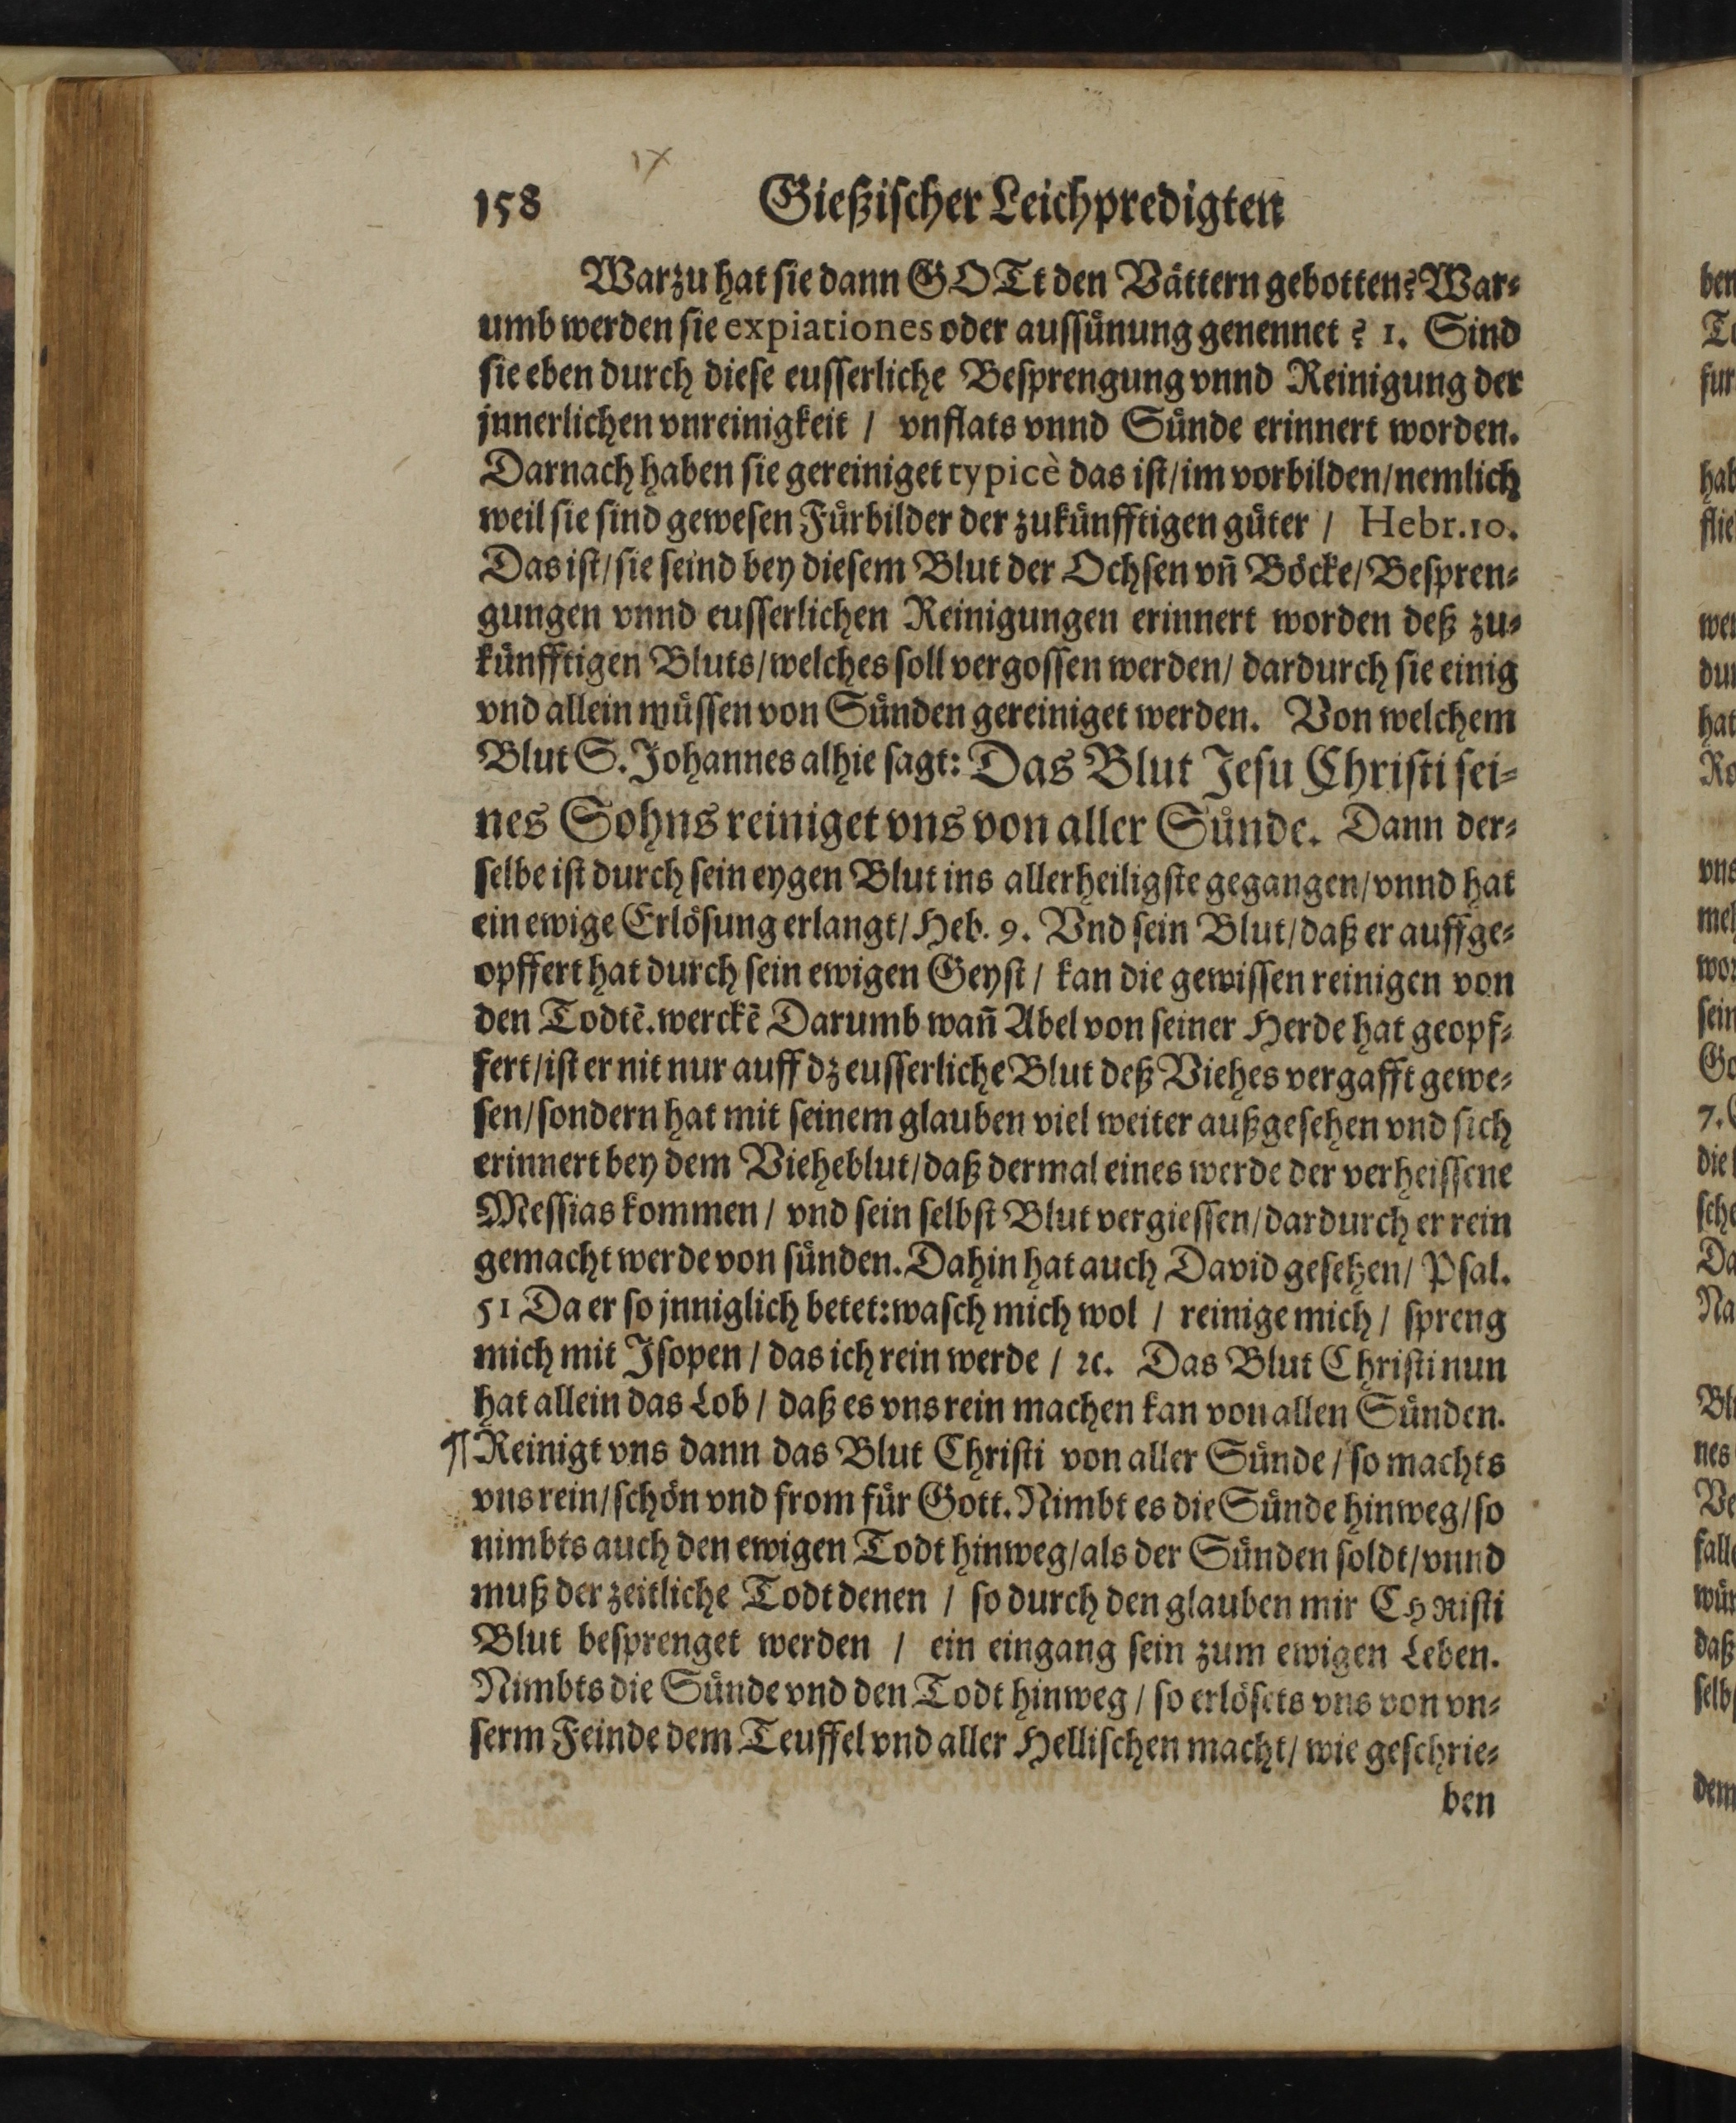 158 Gießischer Leichpredigten
Warzu hat sie dann GOTt den Vättern gebotten? War-
umb werden sie expiationes oder aussünung genennet? 1. Sind
sie eben durch diese eusserliche Besprengung vnnd Reinigung der
jnnerlichen vnreinigkeit / vnflats vnnd Sünde erinnert worden.
Darnach haben sie gereiniget typicè das ist/im vorbilden/nemlich
weil sie sind gewesen Fürbilder der zukünfftigen güter / Hebr.10.
Das ist/sie seind bey diesem Blut der Ochsen vñ Böcke/Bespren-
gungen vnnd eusserlichen Reinigungen erinnert worden deß zu-
künfftigen Bluts/welches soll vergossen werden/ dardurch sie einig
vnd allein müssen von Sünden gereiniget werden. Von welchem
Blut S. Johannes alhie sagt: Das Blut Jesu Christi sei-
nes Sohns reiniget vns von aller Sünde. Dann der-
selbe ist durch sein eygen Blut ins allerheiligste gegangen/vnnd hat
ein ewige Erlösung erlangt/Heb. 9. Vnd sein Blut/daß er auffge-
opffert hat durch sein ewigen Geyst / kan die gewissen reinigen von
den Todtē.werckē Darumb wañ Abel von seiner Herde hat geopf-
fert/ist er nit nur auff dz eusserliche Blut deß Viehes vergafft gewe-
sen/sondern hat mit seinem glauben viel weiter außgesehen vnd sich
erinnert bey dem Vieheblut/daß dermal eines werde der verheissene
Messias kommen / vnd sein selbst Blut vergiessen/dardurch er rein
gemacht werde von sünden. Dahin hat auch David gesehen/ Psal.
51 Da er so jnniglich betet: wasch mich wol / reinige mich / spreng
mich mit Isopen / das ich rein werde / ꝛc. Das Blut Christi nun
hat allein das Lob / daß es vns rein machen kan von allen Sünden.
Reinigt vns dann das Blut Christi von aller Sünde / so machts
vns rein/schön vnd from für Gott. Nimbt es die Sünde hinweg/so
nimbts auch den ewigen Todt hinweg/als der Sünden soldt/vnnd
muß der zeitliche Todt denen / so durch den glauben mir CHRisti
Blut besprenget werden / ein eingang sein zum ewigen Leben.
Nimbts die Sünde vnd den Todt hinweg / so erlösets vns von vn-
serm Feinde dem Teuffel vnd aller Hellischen macht/ wie geschrie-
ben